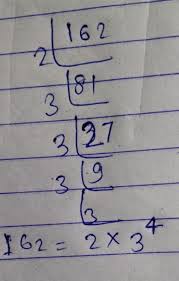 2 | 162
3 | 81
3 | 27
3 | 9
3
162 = 2 × 3^4